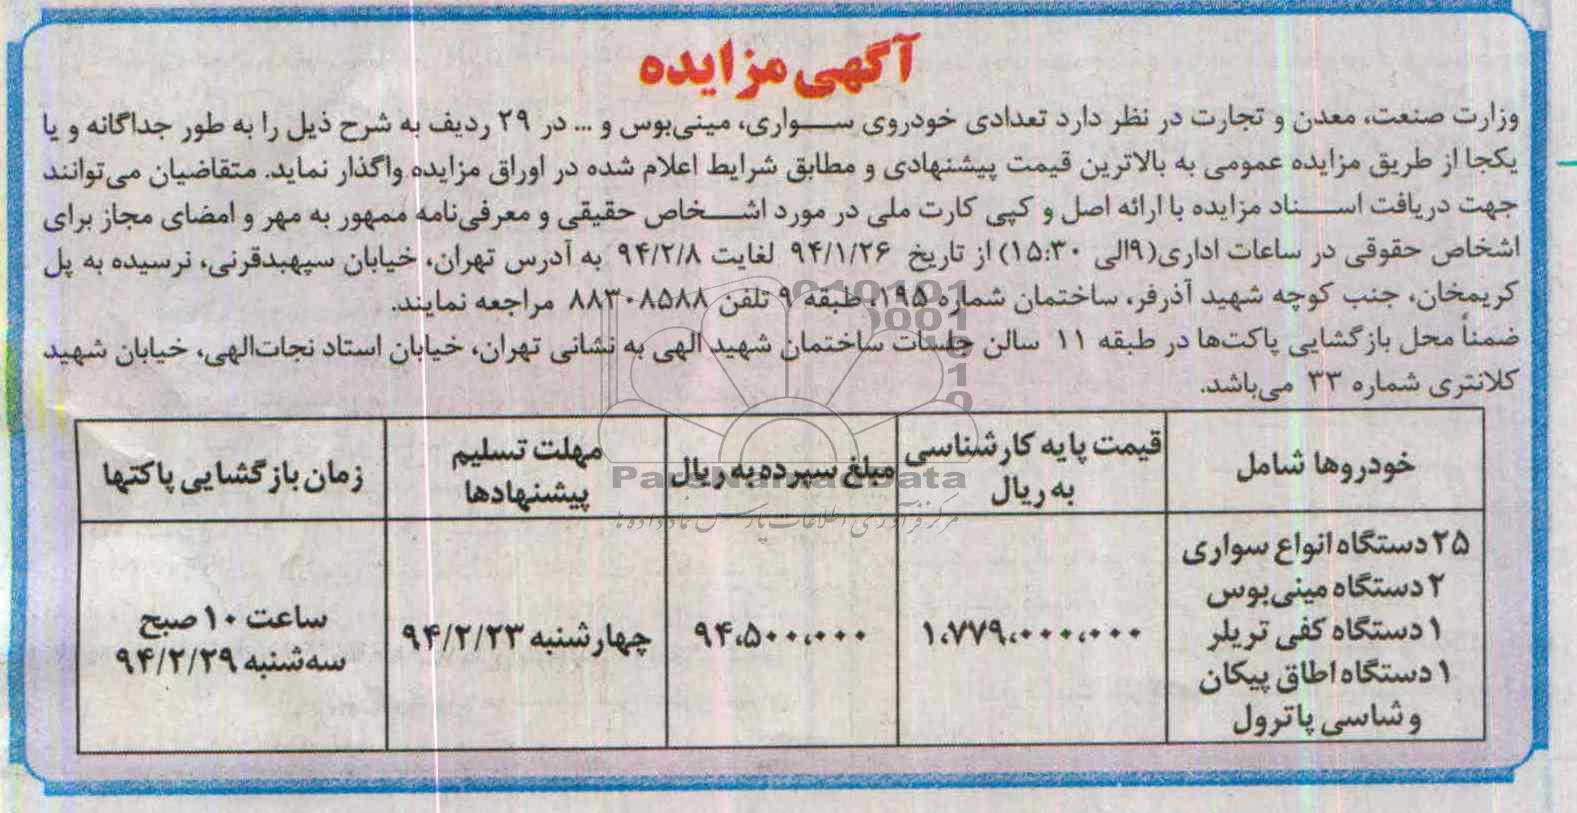 آگهی مزایده
وزارت صنعت، معدن و تجارت در نظر دارد تعدادی خودروی سواری، مینی‌بوس و ... در ۲۹ ردیف به شرح ذیل را به طور جداگانه و یا
یکجا از طریق مزایده عمومی به بالاترین قیمت پیشنهادی و مطابق شرایط اعلام شده در اوراق مزایده واگذار نماید. متقاضیان می‌توانند
جهت دریافت اسناد مزایده با ارائه اصل و کپی کارت ملی در مورد اشخاص حقیقی و معرفی‌نامه ممهور به مهر و امضای مجاز برای
اشخاص حقوقی در ساعات اداری(۹الی ۱۵:۳۰) از تاریخ ۹۴/۱/۲۶ لغایت ۹۴/۲/۸ به آدرس تهران، خیابان سپهبدقرنی، نرسیده به پل
کریمخان، جنب کوچه شهید آذرفر، ساختمان شماره ۱۹۵، طبقه ۹ تلفن ۸۸۳۰۸۵۸۸ مراجعه نمایند.
ضمناً محل بازگشایی پاکت‌ها در طبقه ۱۱ سالن جلسات ساختمان شهید الهی به نشانی تهران، خیابان استاد نجات‌الهی، خیابان شهید
کلانتری شماره ۳۳ می‌باشد.
خودروها شامل
قیمت پایه کارشناسی
به ریال
مبلغ سپرده به ریال
مهلت تسلیم
پیشنهادها
زمان بازگشایی پاکتها
۲۵ دستگاه انواع سواری
۲ دستگاه مینی‌بوس
۱ دستگاه کفی تریلر
۱ دستگاه اطاق پیکان
و شاسی پاترول
۱،۷۷۹،۰۰۰،۰۰۰
۹۴،۵۰۰،۰۰۰
چهارشنبه ۹۴/۲/۲۳
ساعت ۱۰ صبح
سه‌شنبه ۹۴/۲/۲۹
ParsNamadData
مرکز فرآوری اطلاعات پارس نماد داده ها